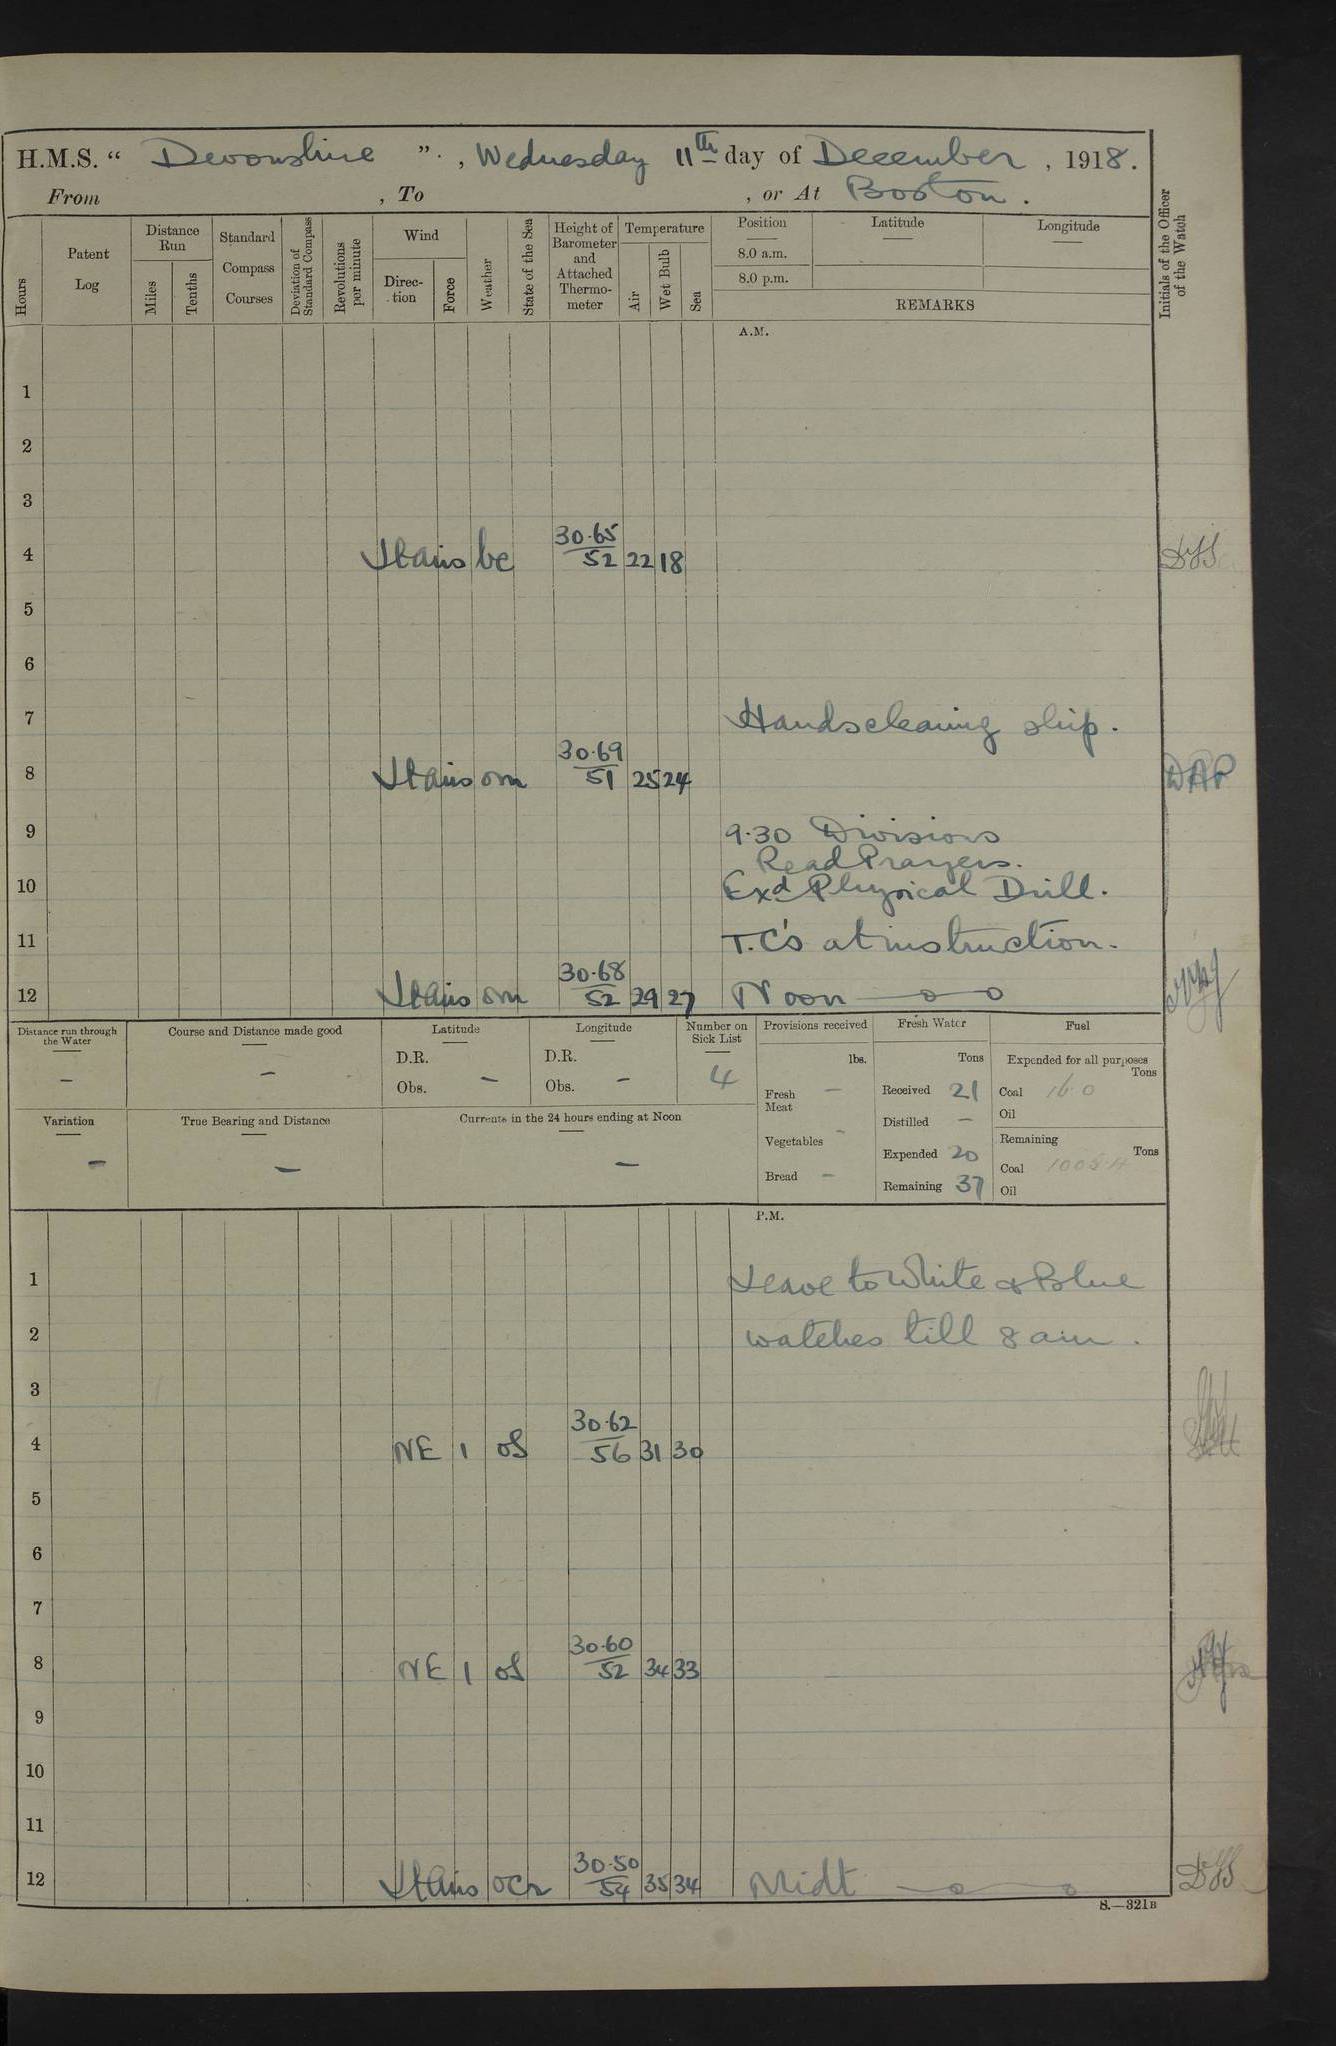 H.M.S. “ Devonshire ” , Wednesday 11th day of December , 1918.
From , To , or At Boston .
Hours
Patent Log
Distance Run
Miles
Tenths
Standard Compass Courses
Deviation of Standard Compass
Revolutions per minute
Wind
Direc-tion
Force
Weather
State of the Sea
Height of Barometer and Attached Thermo-meter
Temperature
Air
Wet Bulb
Sea
Position
8.0 a.m.
8.0 p.m.
Latitude
Longitude
REMARKS
Initials of the Officer of the Watch
A.M.
1
2
3
4 bc 30.65 52 22 18
5
6
7 Hands cleaning ship.
8 om 30.69 51 25 24 DAP
9 9.30 Divisions
Read Prayers.
10 Exd Physical Drill.
11 T.C's at instruction.
12 om 30.68 52 29 27 Noon
Distance run through the Water
–
Course and Distance made good
–
Latitude
D.R.
Obs. –
Longitude
D.R.
Obs. –
Number on Sick List
4
Provisions received
lbs.
Fresh Meat –
Vegetables –
Bread –
Fresh Water
Tons
Received 21
Distilled –
Expended 20
Remaining 37
Fuel
Expended for all purposes
Tons
Coal 16.0
Oil
Remaining
Tons
Coal
Oil
Variation
–
True Bearing and Distance
–
Currents in the 24 hours ending at Noon
–
P.M.
1 Leave to White & Blue
2 watches till 8 am.
3
4 NE 1 of 30.62 56 31 30
5
6
7
8 NE 1 of 30.60 52 34 33
9
10
11
12 30.50 54 35 34 Midt
S.—321B